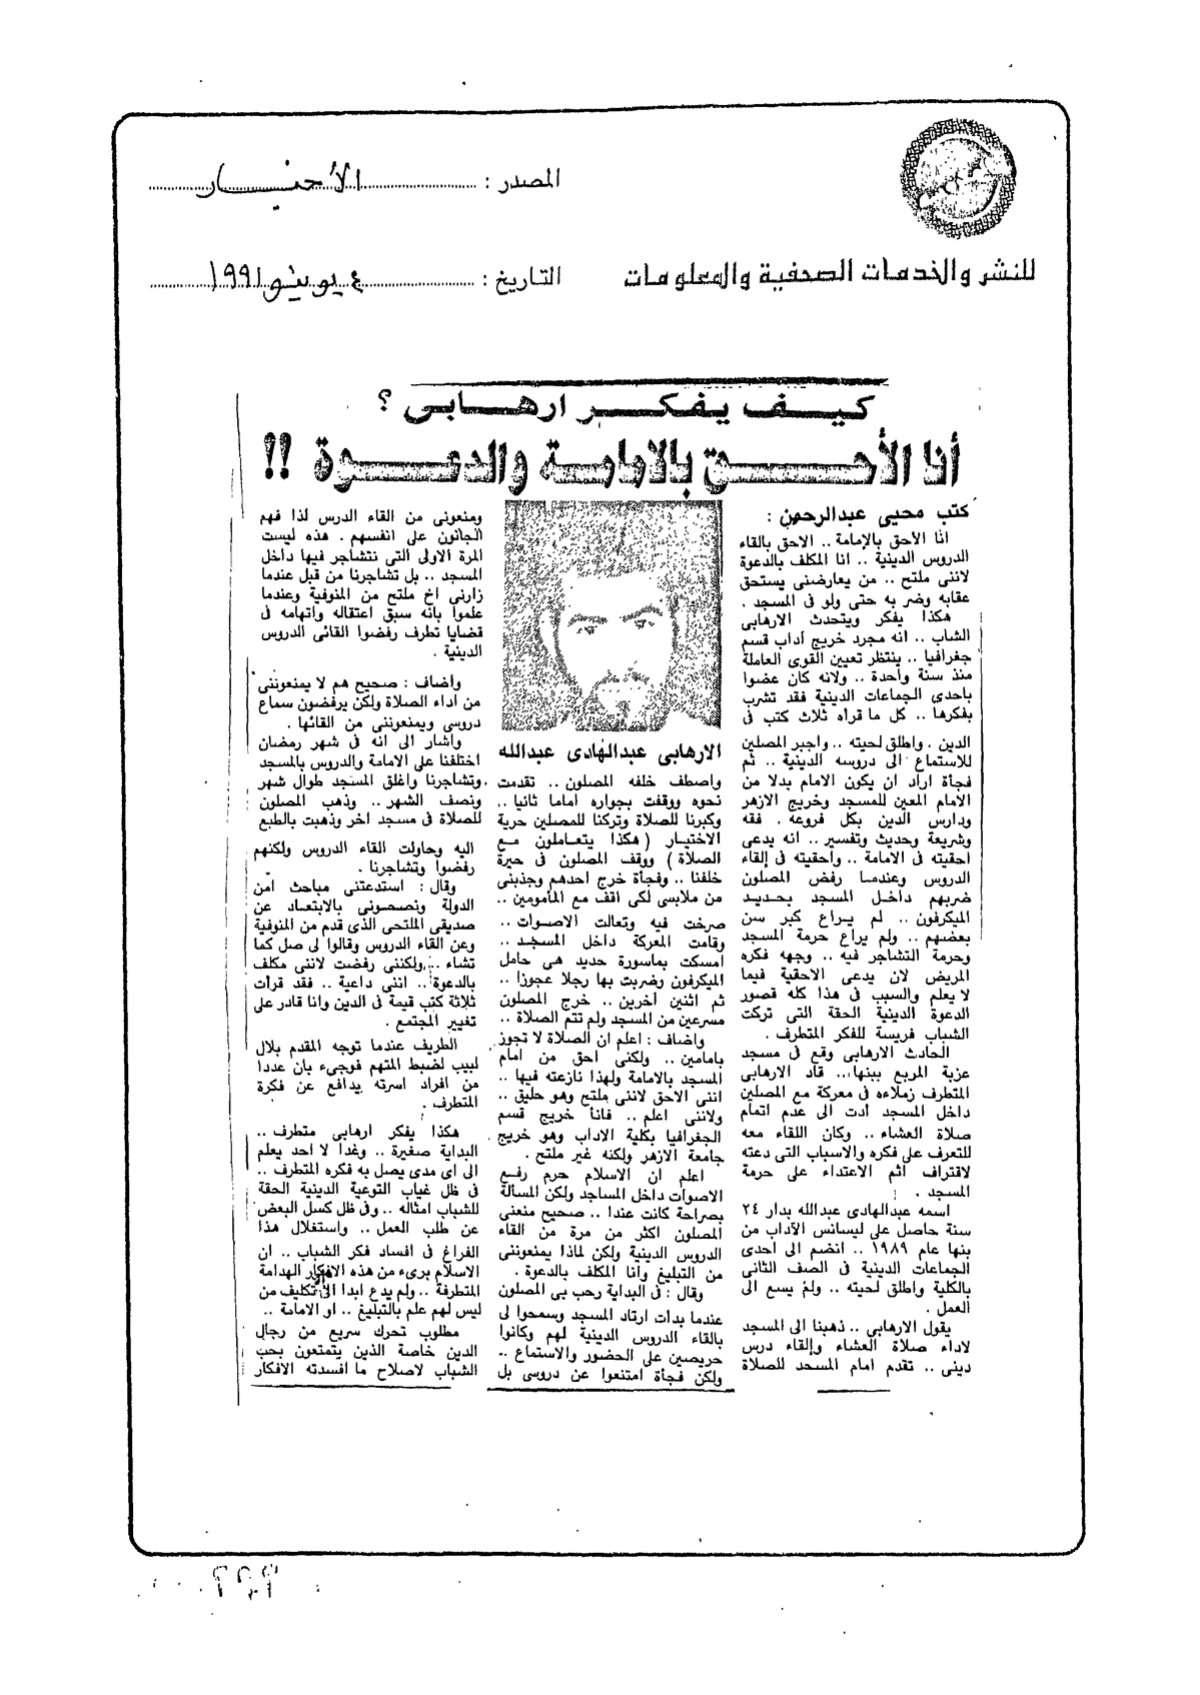 المصدر : الأخبار
للنشر والخدمات الصحفية والمعلومات
التاريخ : ٤ يونيو ١٩٩١
كيف يفكر ارهابى ؟
أنا الأحق بالامامة والدعوة !!
كتب محيى عبدالرحمن :
انا الأحق بالإمامة .. الاحق بالقاء
الدروس الدينية .. انا المكلف بالدعوة
لاننى ملتح .. من يعارضنى يستحق
عقابه وضربه حتى ولو فى المسجد .
هكذا يفكر ويتحدث الارهابى
الشاب .. انه مجرد خريج آداب قسم
جغرافيا .. ينتظر تعيين القوى العاملة
منذ سنة واحدة .. ولانه كان عضوا
باحدى الجماعات الدينية فقد تشرب
بفكرها .. كل ما قرأه ثلاث كتب فى
الدين . واطلق لحيته .. واجبر المصلين
للاستماع الى دروسه الدينية .. ثم
فجأة اراد ان يكون الامام بدلا من
الامام المعين للمسجد وخريج الازهر
ودارس الدين بكل فروعه . فقه
وشريعة وحديث وتفسير .. انه يدعى
احقيته فى الامامة .. واحقيته فى إلقاء
الدروس وعندما رفض المصلون
ضربهم داخل المسجد بحديد
الميكرفون .. لم يراع كبر سن
بعضهم .. ولم يراع حرمة المسجد
وحرمة التشاجر فيه .. وجهه فكره
المريض لان يدعى الاحقية فيما
لا يعلم والسبب فى هذا كله قصور
الدعوة الدينية الحقة التى تركت
الشباب فريسة للفكر المتطرف .
الحادث الارهابى وقع فى مسجد
عزبة المربع ببنها... قاد الارهابى
المتطرف زملاءه فى معركة مع المصلين
داخل المسجد أدت الى عدم اتمام
صلاة العشاء .. وكان اللقاء معه
للتعرف على فكره والاسباب التى دعته
لاقتراف اثم الاعتداء على حرمة
المسجد .
اسمه عبدالهادى عبدالله بدار ٢٤
سنة حاصل على ليسانس الآداب من
بنها عام ١٩٨٩ .. انضم الى احدى
الجماعات الدينية فى الصف الثانى
بالكلية واطلق لحيته .. ولم يسع الى
العمل .
يقول الارهابى .. ذهبنا الى المسجد
لاداء صلاة العشاء وإلقاء درس
دينى .. تقدم امام المسجد للصلاة
الارهابى عبدالهادى عبدالله
واصطف خلفه المصلون .. تقدمت
نحوه ووقفت بجواره أماما ثانيا ..
وكبرنا للصلاة وتركنا للمصلين حرية
الاختيار ( هكذا يتعاملون مع
الصلاة ) ووقف المصلون فى حيرة
خلفنا .. وفجأة خرج احدهم وجذبنى
من ملابسى لكى اقف مع المأمومين ..
صرخت فيه وتعالت الاصوات ..
وقامت المعركة داخل المسجد ..
امسكت بماسورة حديد هى حامل
الميكرفون وضربت بها رجلا عجوزا ..
ثم اثنين آخرين .. خرج المصلون
مسرعين من المسجد ولم تتم الصلاة ..
واضاف : اعلم ان الصلاة لا تجوز
بامامين .. ولكنى احق من امام
المسجد بالامامة ولهذا نازعته فيها ..
اننى الاحق لاننى ملتح وهو حليق ..
ولاننى اعلم .. فانا خريج قسم
الجغرافيا بكلية الاداب وهو خريج
جامعة الازهر ولكنه غير ملتح .
اعلم ان الاسلام حرم رفع
الاصوات داخل المساجد ولكن المسألة
بصراحة كانت عندا .. صحيح منعنى
المصلون اكثر من مرة من القاء
الدروس الدينية ولكن لماذا يمنعوننى
من التبليغ وانا المكلف بالدعوة .
وقال : فى البداية رحب بى المصلون
عندما بدات ارتاد المسجد وسمحوا لى
بالقاء الدروس الدينية لهم وكانوا
حريصين على الحضور والاستماع ..
ولكن فجأة امتنعوا عن دروسى بل
ومنعونى من القاء الدرس لذا فهم
الجانون على انفسهم . هذه ليست
المرة الاولى التى نتشاجر فيها داخل
المسجد .. بل تشاجرنا من قبل عندما
زارنى اخ ملتح من المنوفية وعندما
علموا بانه سبق اعتقاله واتهامه فى
قضايا تطرف رفضوا القائى الدروس
الدينية .
واضاف : صحيح هم لا يمنعوننى
من أداء الصلاة ولكن يرفضون سماع
دروسى ويمنعوننى من القائها .
واشار الى انه فى شهر رمضان
اختلفنا على الامامة والدروس بالمسجد
وتشاجرنا واغلق المسجد طوال شهر
ونصف الشهر .. وذهب المصلون
للصلاة فى مسجد اخر وذهبت بالطبع
اليه وحاولت القاء الدروس ولكنهم
رفضوا وتشاجرنا .
وقال : استدعتنى مباحث أمن
الدولة ونصحونى بالابتعاد عن
صديقى الملتحى الذى قدم من المنوفية
وعن القاء الدروس وقالوا لى صل كما
تشاء .. ولكننى رفضت لاننى مكلف
بالدعوة .. اننى داعية .. فقد قرأت
ثلاثة كتب قيمة فى الدين وانا قادر على
تغيير المجتمع .
الطريف عندما توجه المقدم بلال
لبيب لضبط المتهم فوجىء بان عددا
من افراد اسرته يدافع عن فكرة
المتطرف .
هكذا يفكر ارهابى متطرف ..
البداية صغيرة .. وغدا لا احد يعلم
الى اى مدى يصل به فكره المتطرف ..
فى ظل غياب التوعية الدينية الحقة
للشباب امثاله .. وفى ظل كسل البعض
عن طلب العمل .. واستغلال هذا
الفراغ فى افساد فكر الشباب .. ان
الاسلام برىء من هذه الافكار الهدامة
المتطرفة .. ولم يدع ابدا الى تكليف من
ليس لهم علم بالتبليغ .. او الامامة ..
مطلوب تحرك سريع من رجال
الدين خاصة الذين يتمتعون بحب
الشباب لاصلاح ما افسدته الافكار